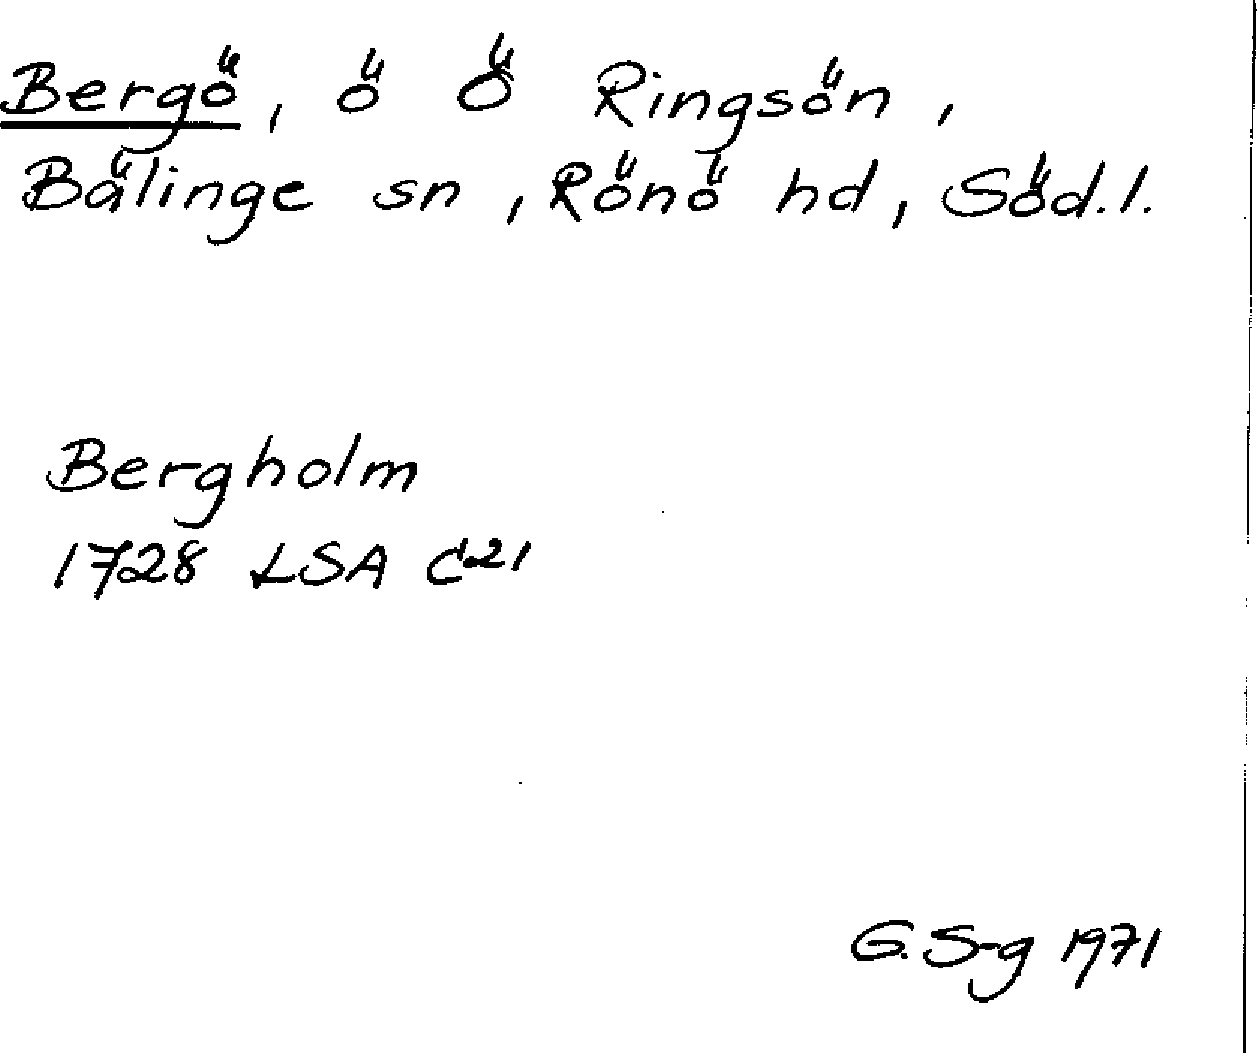 Bergö, ö Ö Ringsön,
Bälinge sn, Rönö hd, Söd.l.
Bergholm
1728 LSA C21
G. S-g 1971